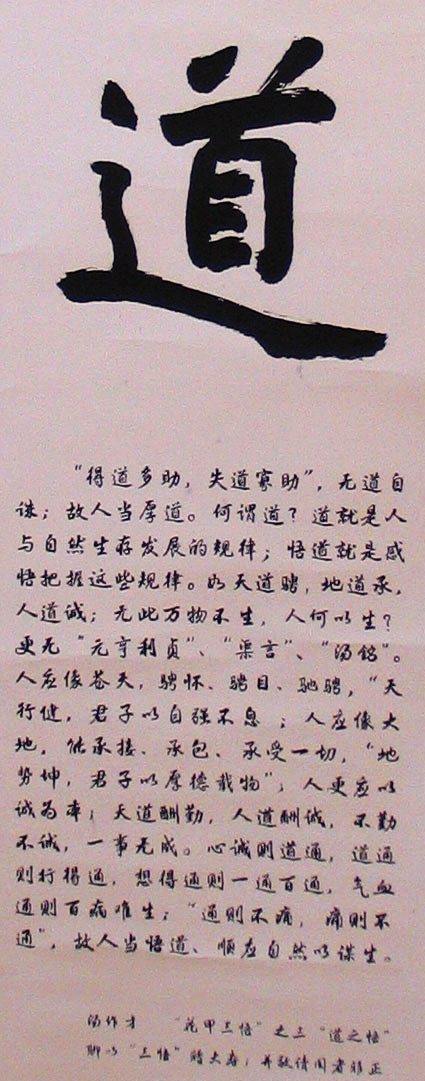 道
“得道多助，失道寡助”，无道自
诛；故人当厚道。何谓道？道就是人
与自然生存发展的规律；悟道就是感
悟把握这些规律。如天道骋，地道承，
人道诚；无此万物不生，人何以生？
更无“元亨利贞”、“渠言”、“汤铭”。
人应像苍天，骋怀、骋目、驰骋，“天
行健，君子以自强不息；人应像大
地，能承接、承包、承受一切，“地
势坤，君子以厚德载物”；人更应以
诚为本；天道酬勤，人道酬诚，不勤
不诚，一事无成。心诚则道通，道通
则行得通，想得通则一通百通，气血
通则百病难生；“通则不痛，痛则不
通”，故人当悟道、顺应自然以谋生。
汤作才 “花甲三悟”之三“道之悟”
聊以“三悟”赠大寿，并敬请阅者雅正